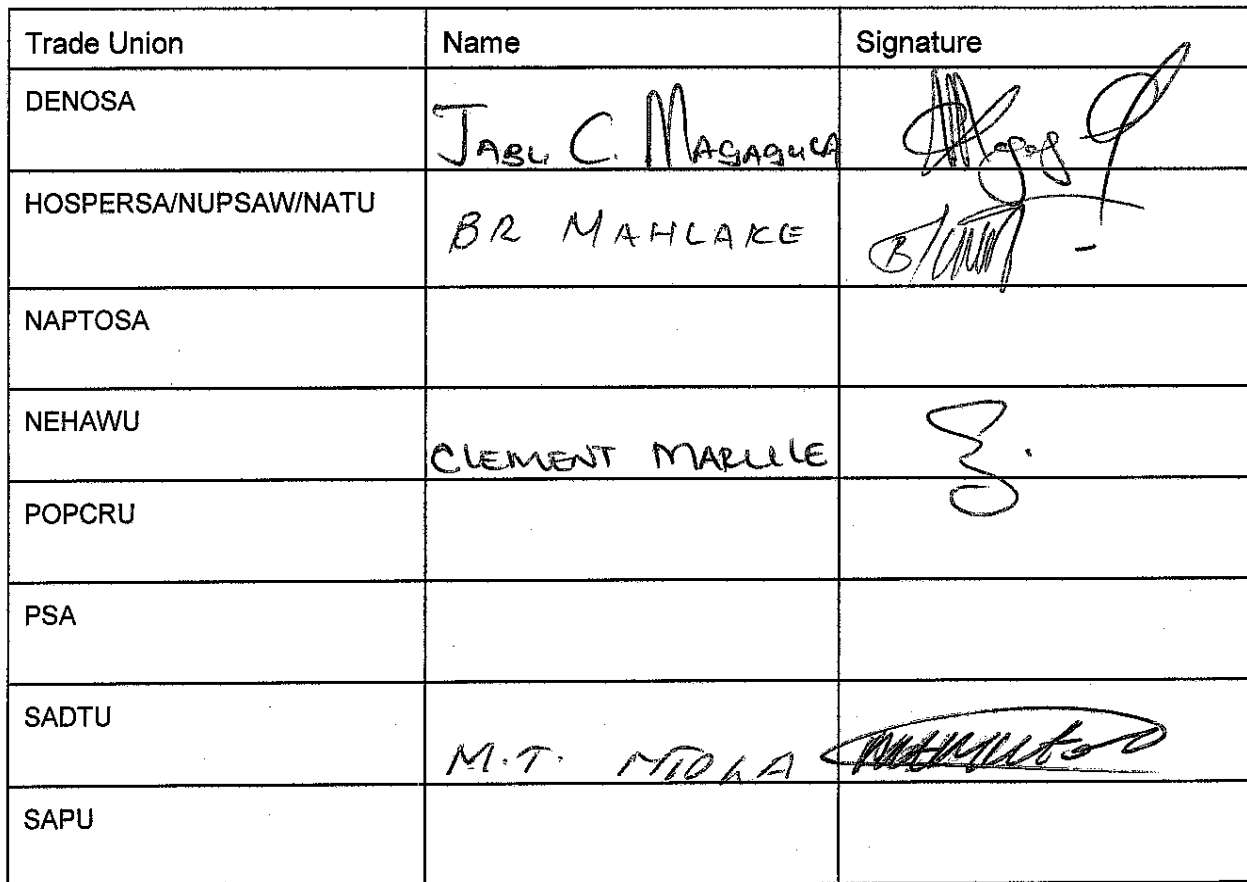 Trade Union Name Signature
DENOSA JABU C. MAGAGULA
HOSPERSA/NUPSAW/NATU BR MAHLAKE
NAPTOSA
NEHAWU CLEMENT MARULE
POPCRU
PSA
SADTU M.T.
SAPU